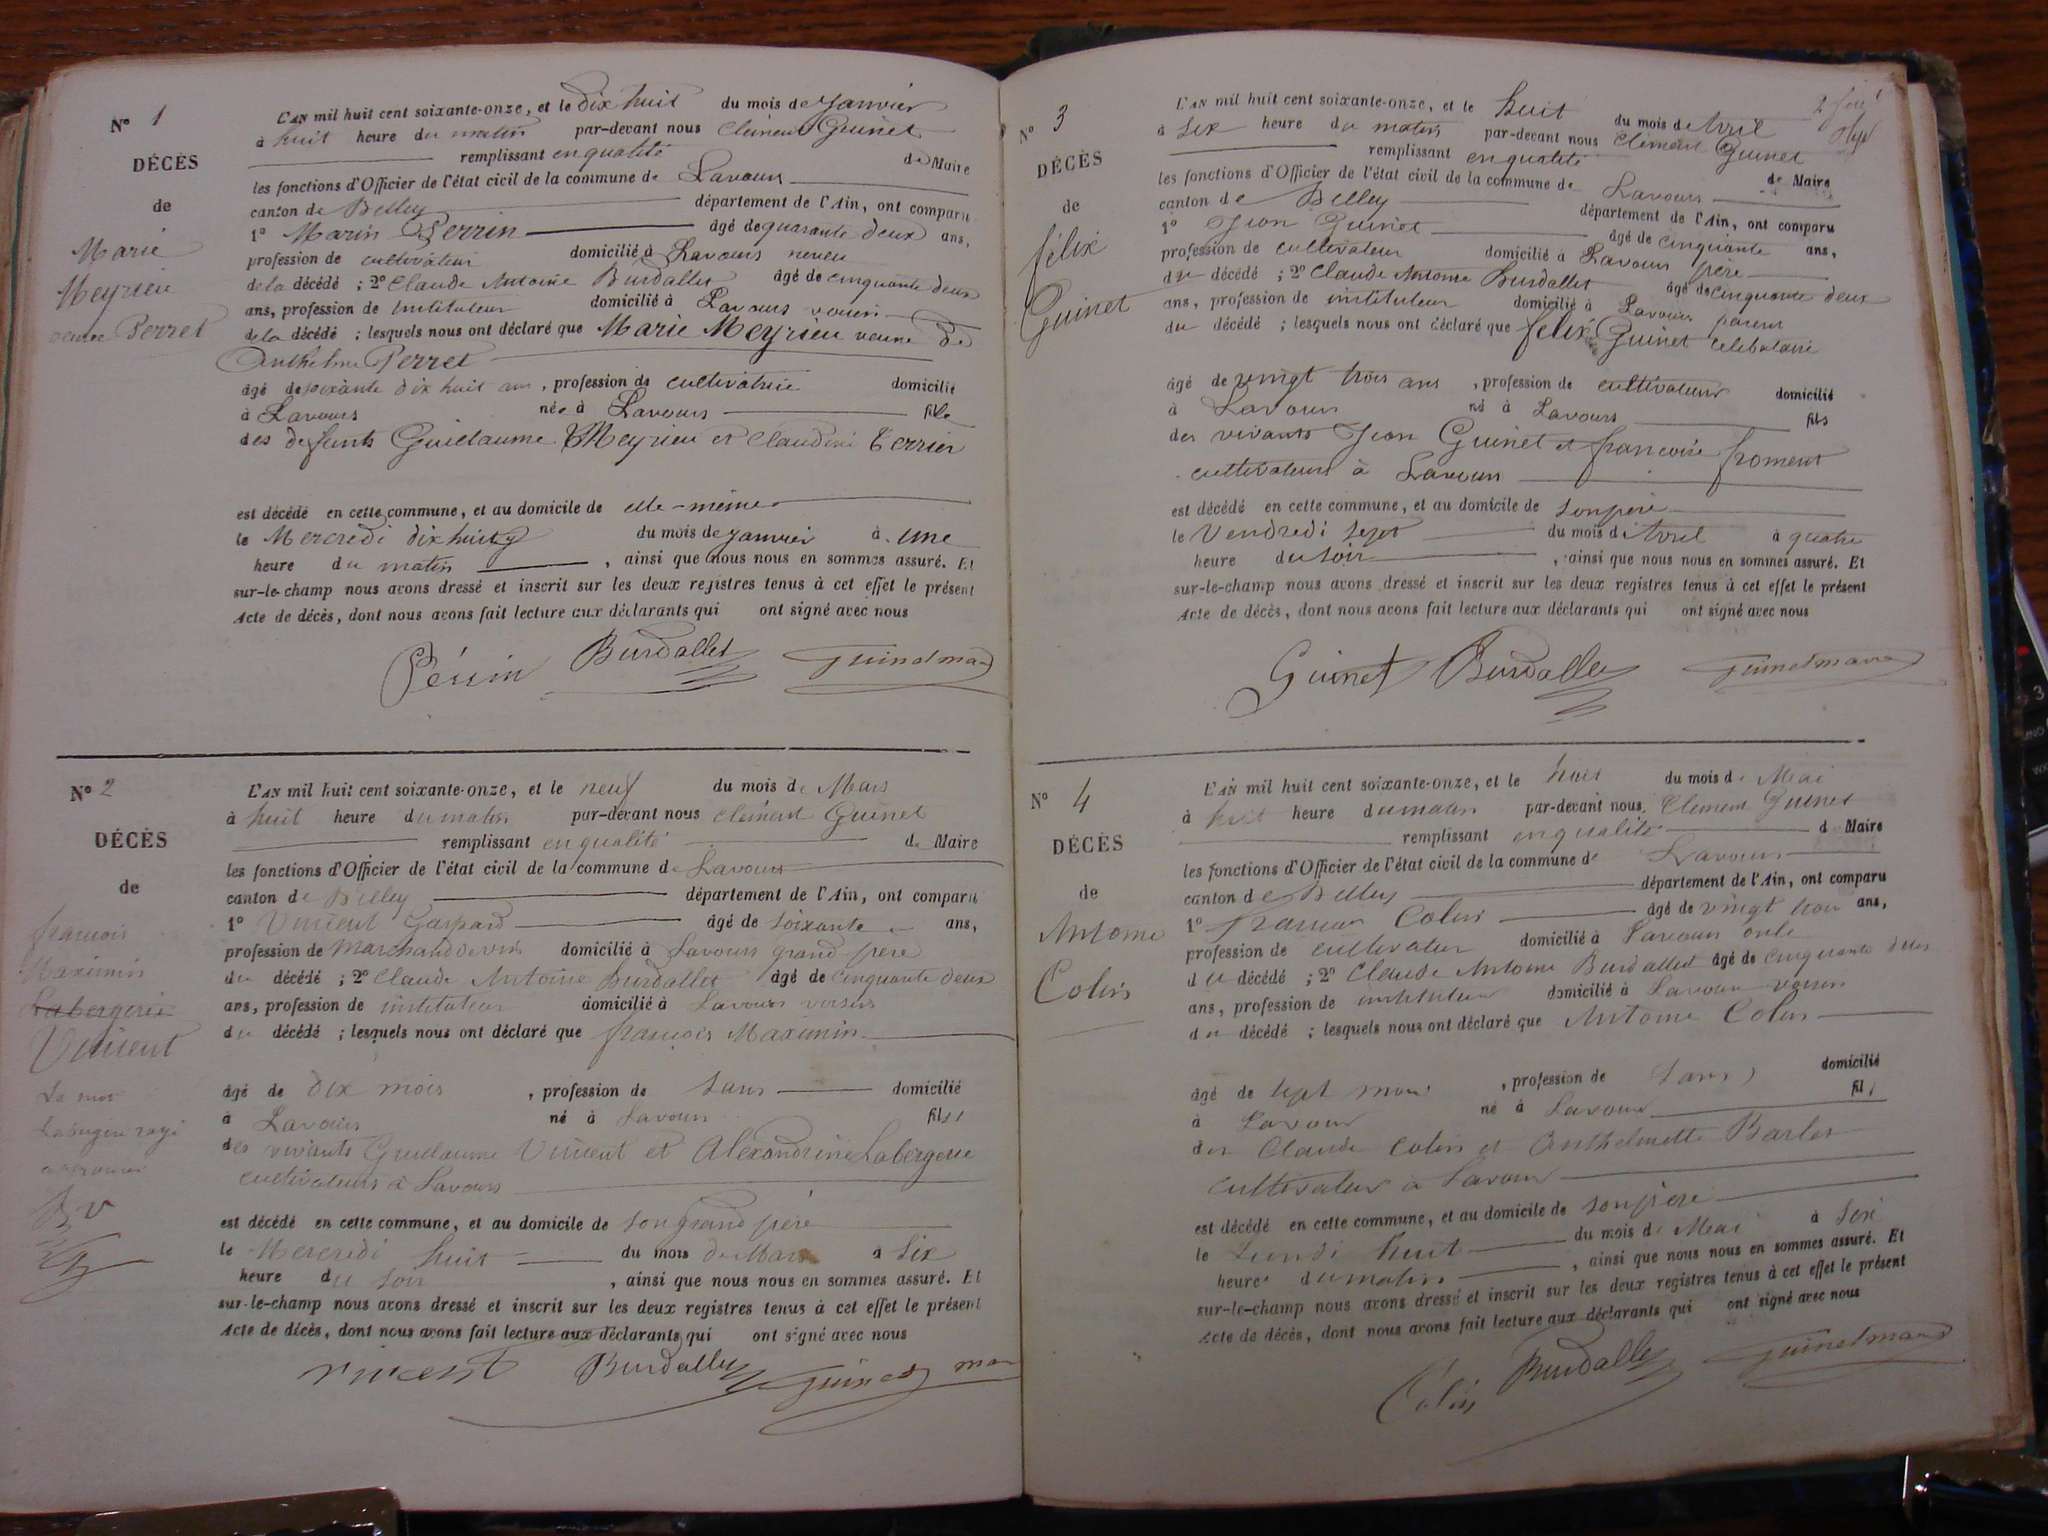 N° 1
DÉCÈS
de
Marie
Meyrieu
veuve Perret
L'AN mil huit cent soixante-onze, et le dix huit du mois de Janvier
à huit heure du matin par-devant nous Clément Guinet
remplissant en qualité de Maire
les fonctions d'Officier de l'état civil de la commune de Lavours
canton de Belley département de l'Ain, ont comparu
1° Marin Perrin âgé de quarante deux ans,
profession de cultivateur domicilié à Lavours neveu
de la décédé ; 2° Claude Antoine Burdallet âgé de cinquante deux
ans, profession de Instituteur domicilié à Lavours voisin
de la décédé ; lesquels nous ont déclaré que Marie Meyrieu veuve de
Anthelme Perret
âgé de soixante dix huit ans, profession de cultivatrice domicilié
à Lavours née à Lavours fille
des defunts Guillaume Meyrieu et Claudine Terrier
est décédé en cette commune, et au domicile de elle-même
le Mercredi dix huit du mois de Janvier à une
heure du matin, ainsi que nous nous en sommes assuré. Et
sur-le-champ nous avons dressé et inscrit sur les deux registres tenus à cet effet le présent
Acte de décès, dont nous avons fait lecture aux déclarants qui ont signé avec nous
Périn Burdallet Guinet maire
N° 2
DÉCÈS
de
francois
Maximin
Labergerie
Vincent
Le mot
rayé
B V
L'AN mil huit cent soixante-onze, et le neuf du mois de Mars
à huit heure du matin par-devant nous Clément Guinet
remplissant en qualité de Maire
les fonctions d'Officier de l'état civil de la commune de Lavours
canton de Belley département de l'Ain, ont comparu
1° Vincent Gaspard âgé de soixante ans,
profession de Marchand de vin domicilié à Lavours grand père
du décédé ; 2° Claude Antoine Burdallet âgé de cinquante deux
ans, profession de instituteur domicilié à Lavours voisin
du décédé ; lesquels nous ont déclaré que francois Maximin
âgé de dix mois, profession de sans domicilié
à Lavours né à Lavours fils
des vivants Guillaume Vincent et Alexandrine Labergerie
cultivateurs à Lavours
est décédé en cette commune, et au domicile de son grand père
le Mercredi huit du mois de Mars à six
heure du soir, ainsi que nous nous en sommes assuré. Et
sur-le-champ nous avons dressé et inscrit sur les deux registres tenus à cet effet le présent
Acte de décès, dont nous avons fait lecture aux déclarants qui ont signé avec nous
Vincent Burdallet Guinet maire
N° 3
DÉCÈS
de
félix
Guinet
L'AN mil huit cent soixante-onze, et le huit du mois de Avril
à six heure du matin par-devant nous Clément Guinet
remplissant en qualité de Maire
les fonctions d'Officier de l'état civil de la commune de Lavours
canton de Belley département de l'Ain, ont comparu
1° Jean Guinet âgé de cinquante ans,
profession de cultivateur domicilié à Lavours père
du décédé ; 2° Claude Antoine Burdallet âgé de cinquante deux
ans, profession de instituteur domicilié à Lavours parent
du décédé ; lesquels nous ont déclaré que félix Guinet celibataire
âgé de vingt trois ans, profession de cultivateur domicilié
à Lavours né à Lavours fils
des vivants Jean Guinet et francoise froment
cultivateurs à Lavours
est décédé en cette commune, et au domicile de son père
le Vendredi sept du mois d'Avril à quatre
heure du soir, ainsi que nous nous en sommes assuré. Et
sur-le-champ nous avons dressé et inscrit sur les deux registres tenus à cet effet le présent
Acte de décès, dont nous avons fait lecture aux déclarants qui ont signé avec nous
Guinet Burdallet Guinet maire
N° 4
DÉCÈS
de
Antoine
Colin
L'AN mil huit cent soixante-onze, et le huit du mois de Mai
à huit heure du matin par-devant nous Clément Guinet
remplissant en qualité de Maire
les fonctions d'Officier de l'état civil de la commune de Lavours
canton de Belley département de l'Ain, ont comparu
1° francois Colin âgé de vingt trois ans,
profession de cultivateur domicilié à Lavours oncle
du décédé ; 2° Claude Antoine Burdallet âgé de cinquante deux
ans, profession de instituteur domicilié à Lavours voisin
du décédé ; lesquels nous ont déclaré que Antoine Colin
âgé de sept mois, profession de sans domicilié
à Lavours né à Lavours fils
des Claude Colin et Anthelmette Barlet
cultivateur à Lavours
est décédé en cette commune, et au domicile de son père
le Lundi huit du mois de Mai à six
heure du matin, ainsi que nous nous en sommes assuré. Et
sur-le-champ nous avons dressé et inscrit sur les deux registres tenus à cet effet le présent
Acte de décès, dont nous avons fait lecture aux déclarants qui ont signé avec nous
Colin Burdallet Guinet maire